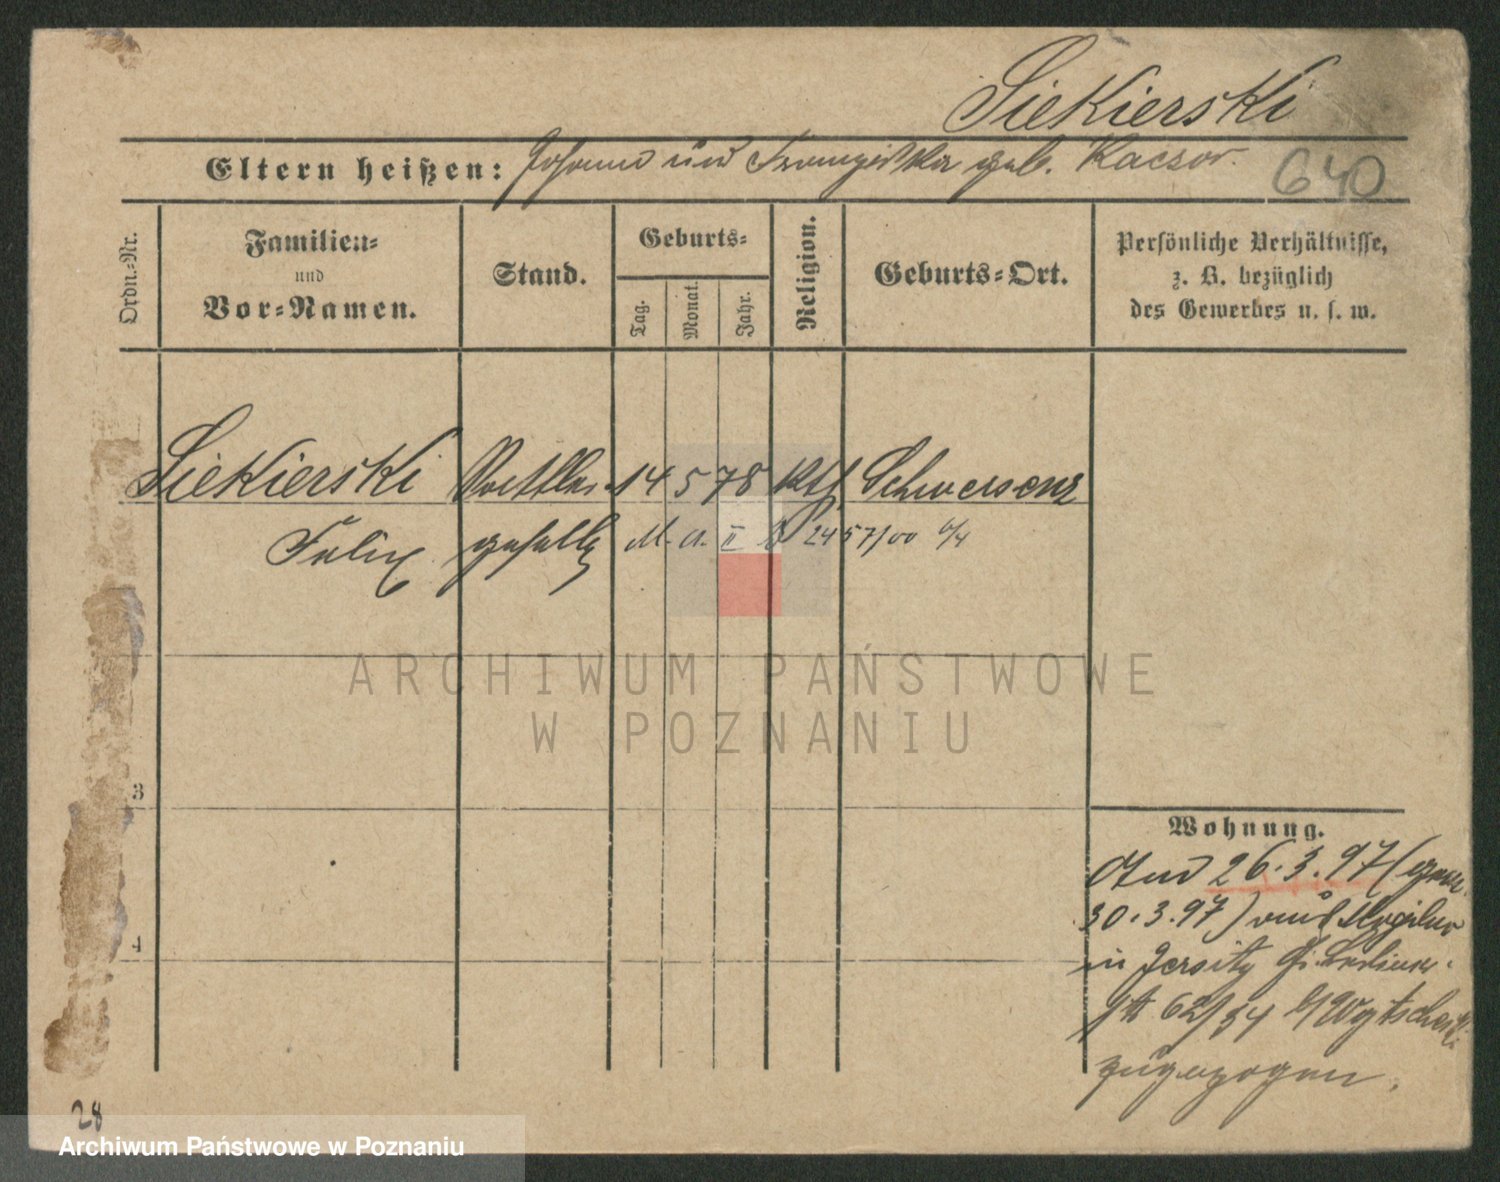 Siekierski
Eltern heißen: Johann und Franziska geb. Kaczor.
640
Ordn.-Nr.
Familien-
und
Vor-Namen.
Stand.
Geburts-
Tag.
Monat.
Jahr.
Religion.
Geburts-Ort.
Persönliche Verhältnisse,
z. B. bezüglich
des Gewerbes u. s. w.
Siekierski 14 5 78 Kth Schwersenz
Felix M. a. II 2457/00
ARCHIWUM PAŃSTWOWE
W POZNANIU
3
4
Wohnung.
26.3.97 (gem.
30.3.97) aus Mogilno
in Jersitz
62/54
zugezogen.
28
Archiwum Państwowe w Poznaniu